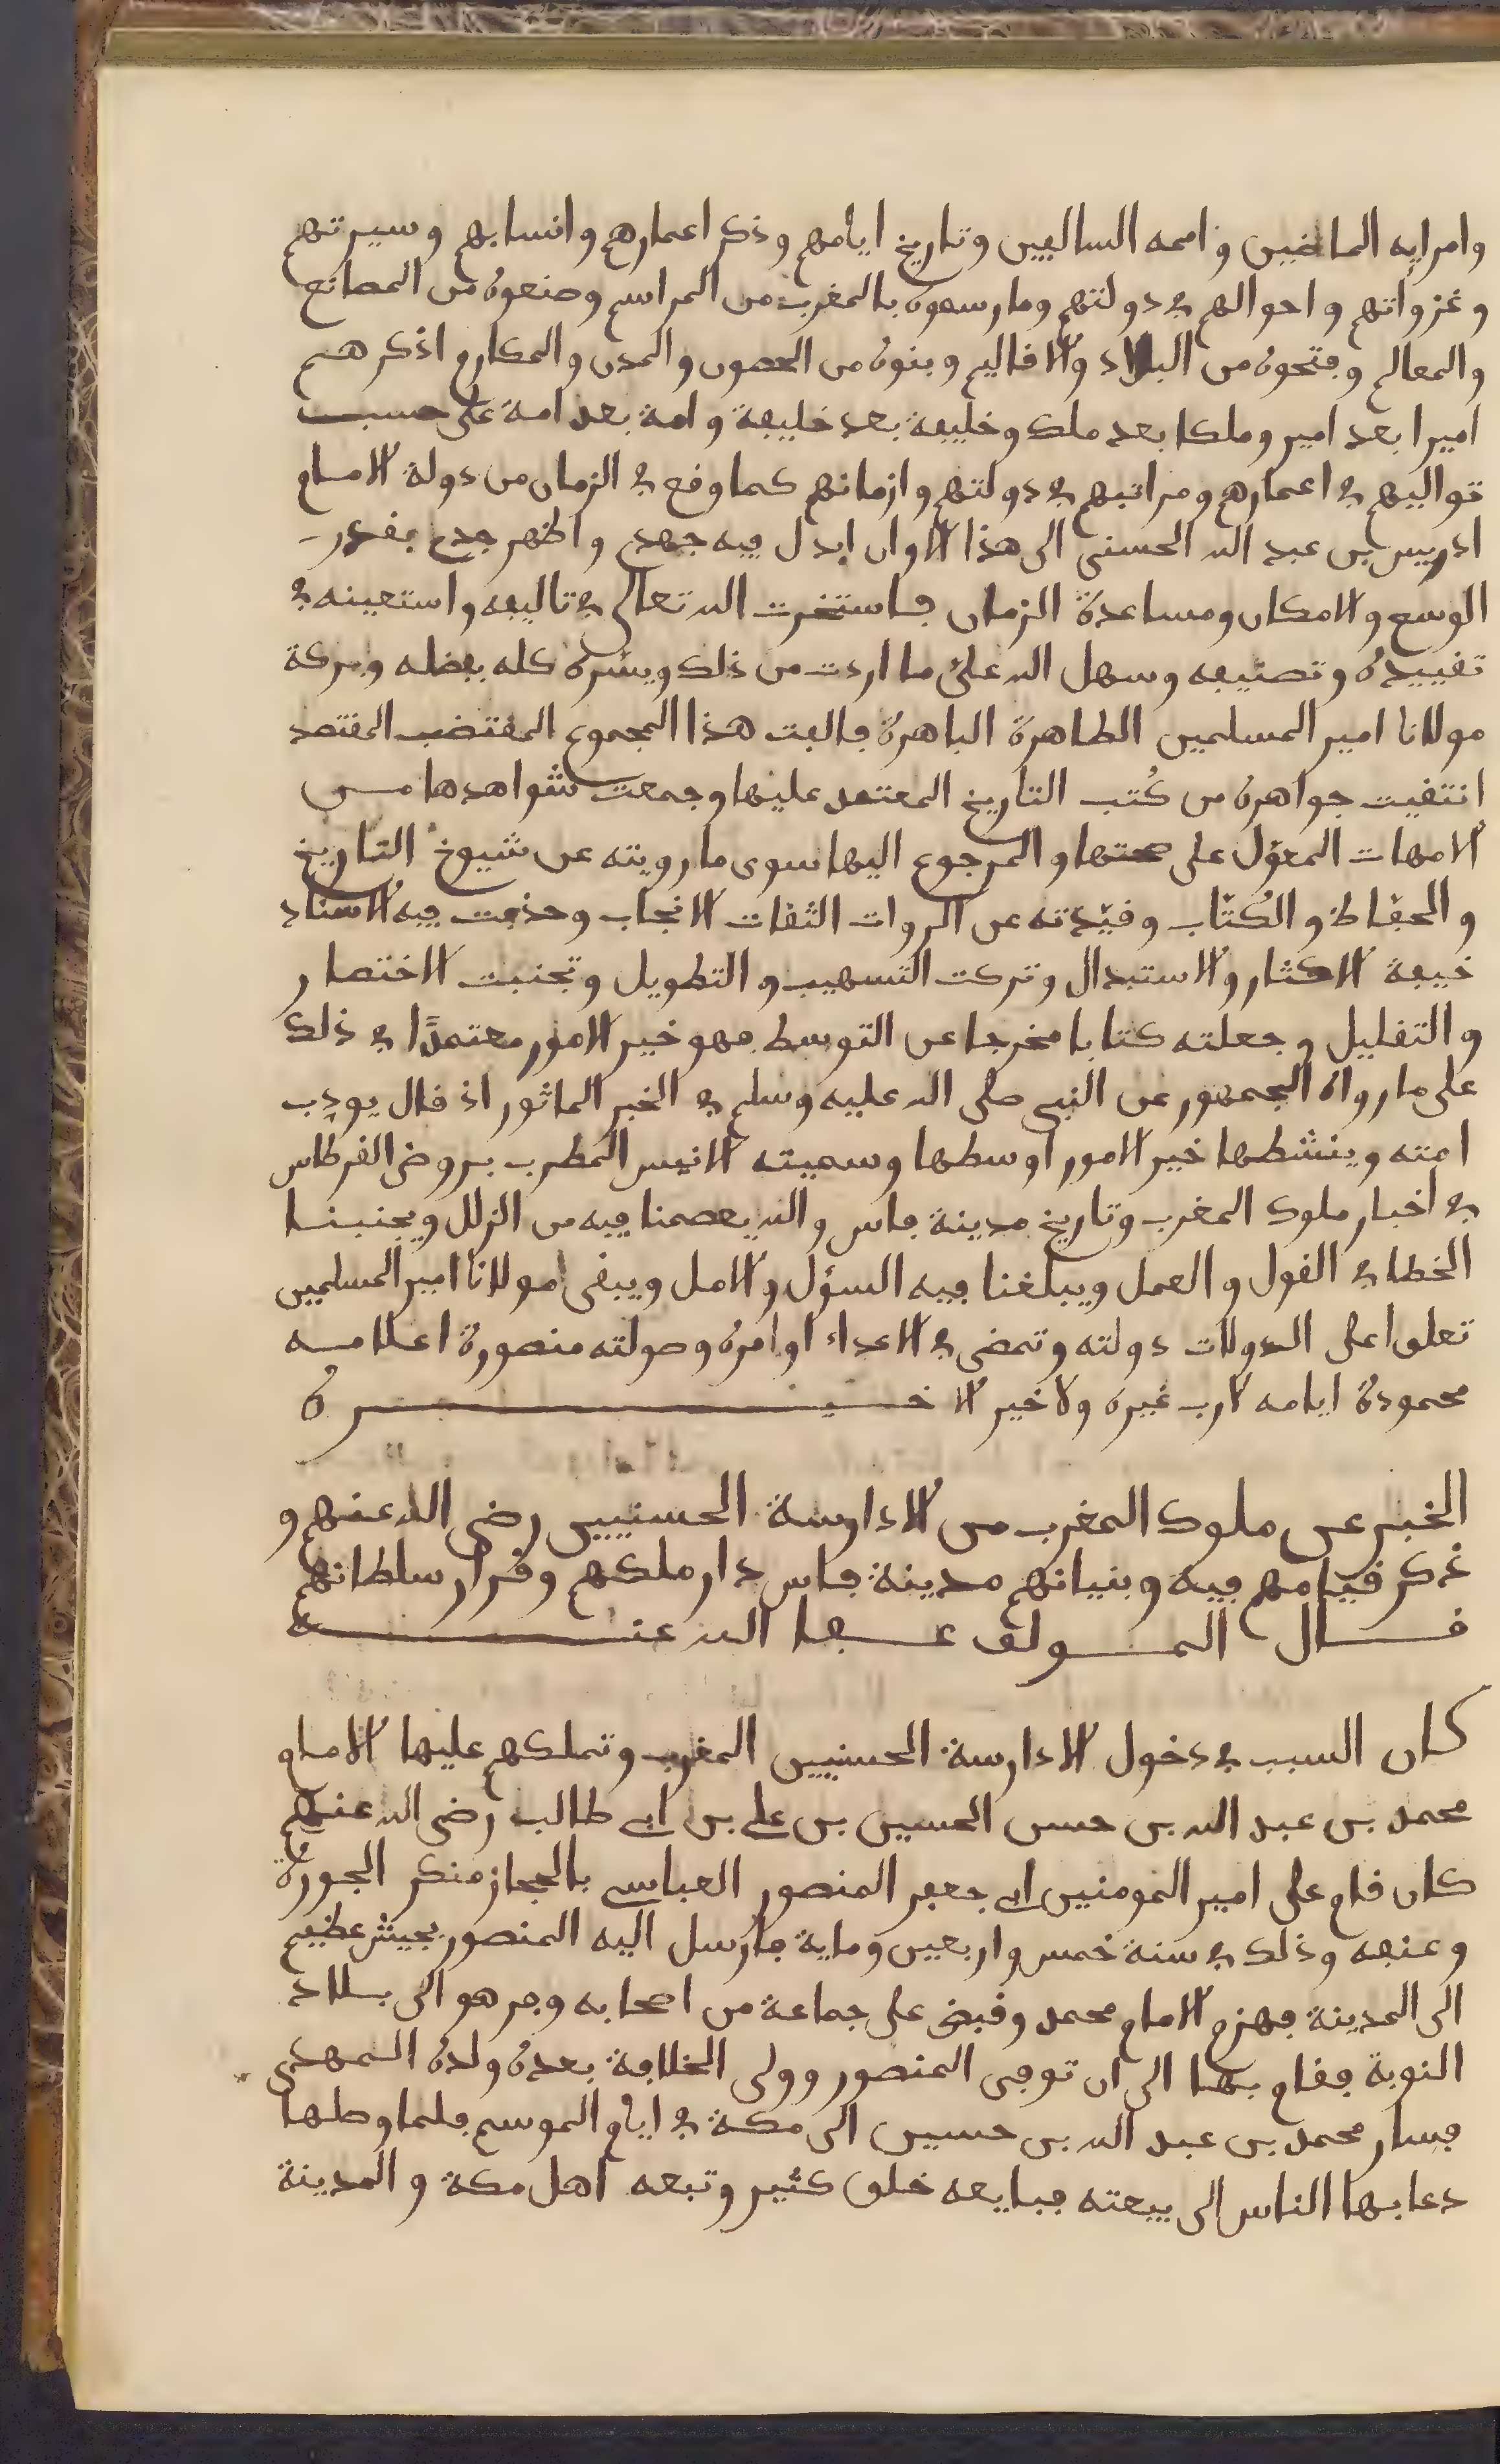 وامرايه الماضين واممه السالفين وتاريخ ايامهم وذكر اعمارهم وانسابهم وسيرتهم
وغزواتهم واحوالهم في دولتهم وما رسموه بالمغرب من المراسم وصنعوه من المصانع
والمعالم وفتحوه من البلاد والاقاليم وبنوه من الحصون والمدن والمكارم اذكرهم
اميرا بعد امير وملكا بعد ملك وخليفة بعد خليفة وامة بعد امة على حسب
تواليهم في اعمارهم ومراتبهم في دولتهم وازمانهم كما وقع في الزمان من دولة الامام
ادريس بن عبد الله الحسنى الى هذا الاوان ابدل فيه جهدي واظهر جدي بقدر
الوسع والامكان ومساعدة الزمان فاستخرت الله تعالى في تاليفه واستعينه في
تقييده وتصنيفه وسهل الله علي ما اردت من ذلك ويسره كله بفضله وبركة
مولانا امير المسلمين الطاهرة الباهرة فالفت هذا المجموع المقتضب المقتصد
انتقيت جواهره من كُتب التاريخ المعتمد عليها وجمعت شواهدها من
الامهات المعوّل على صحتها والمرجوع اليها سوى ما رويته عن شيوخ التاريخ
والحفّاظ والكُتّاب وقيّدته عن الروات الثقات الانجاب وحذفت فيه الاسناد
خيفة الاكثار والاستبدال وتركت التسهيب والتطويل وتجنبت الاختصار
والتقليل وجعلته كتابا مخرجا عن التوسط فهو خير الامور معتمدًا في ذلك
على ما رواه الجمهور عن النبي صلى الله عليه وسلم في الخبر الماثور اذ قال يودب
امته وينشطها خير الامور اوسطها وسميته الانيس المطرب بروض القرطاس
في اخبار ملوك المغرب وتاريخ مدينة فاس والله يعصمنا فيه من الزلل ويجنبنا
الخطا في القول والعمل ويبلغنا فيه السؤل والامل ويبقى مولانا امير المسلمين
تعلوا على الدولات دولته وتمضى في الاعداء اوامره وصولته منصورة اعلامه
محمودة ايامه لا رب غيره ولا خير الا خيره
الخبر عن ملوك المغرب من الادارسة الحسنيين رضى الله عنهم و
ذكر قيامهم فيه وبنيانهم مدينة فاس دار ملكهم وقرار سلطانهم
قال المولف عفا الله عنه
كان السبب في دخول الادارسة الحسنيين المغرب وتملكهم عليها الامام
محمد بن عبد الله بن حسن الحسين بن علي بن ابي طالب رضى الله عنهم
كان قام على امير المومنين ابي جعفر المنصور العباسي بالحجاز منكر الجوره
وعنفه وذلك في سنة خمس واربعين وماية فارسل اليه المنصور بجيش عظيم
الى المدينة فهزم الامام محمد وقبض على جماعة من اصحابه وفر هو الى بلاد
النوبة فقام بها الى ان توفى المنصور وولى الخلافة بعده ولده المهدى
فسار محمد بن عبد الله بن حسين الى مكة في ايام الموسم فلما وصلها
دعا بها الناس الى بيعته فبايعه خلق كثير وتبعه اهل مكة والمدينة